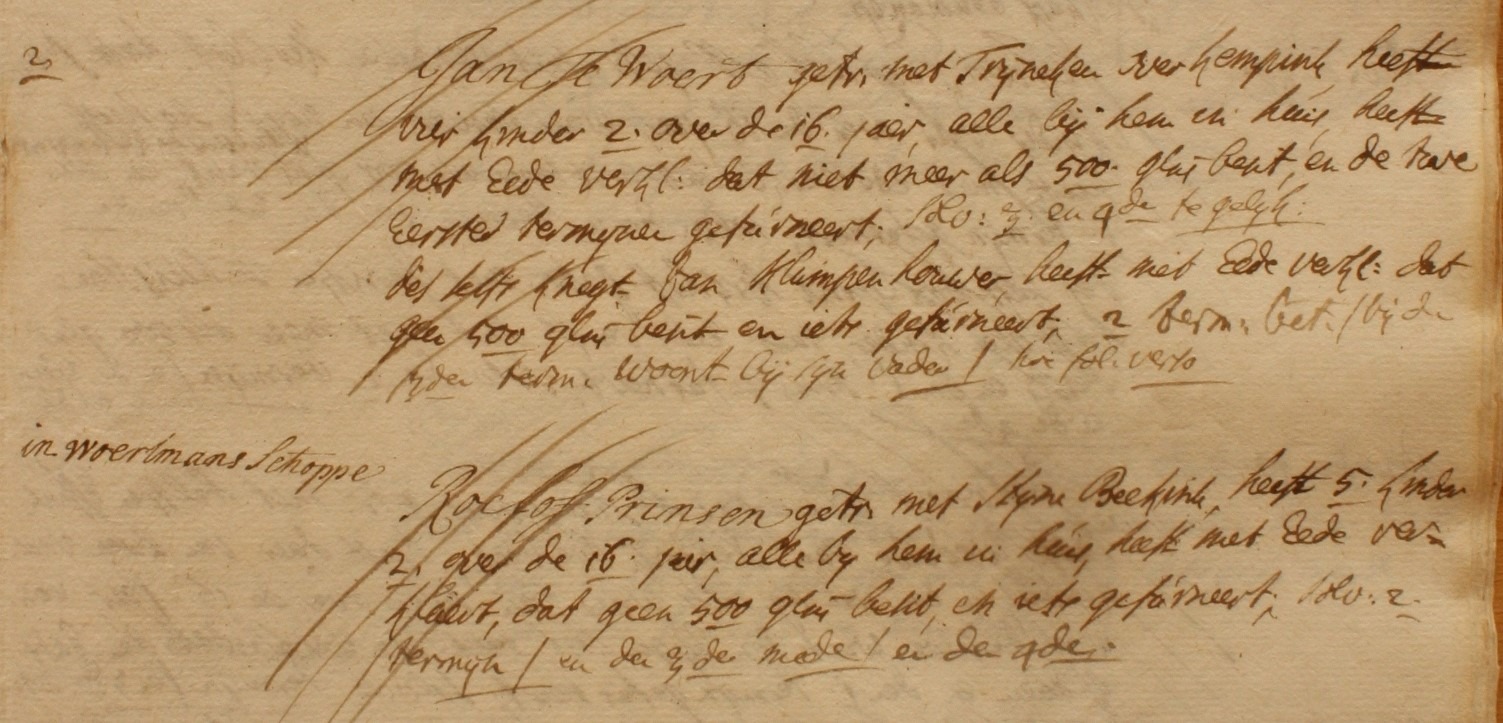 2
Jan te Woert getr. met Trijneken Overkempink heeft
vier kinder 2. over de 16. jaer, alle bij hem in huis heeft
met Eede verkl: dat niet meer als 500. glns besit, en de twe
Eerste termijnen gefúrneert, solv: 3. en 4de te gelijk.
des selfs knegt Jan Klumpenhouwer heeft met Eede verkl: dat
geen 500 glns besit en iets gefúrneert, 2 term. bet. / bij den
3den term. woont bij sijn vader /
in Woertmans Schoppe
Roelof Prinsen getr. met Stijne Beekink, heeft 5. kinder
2. over de 16. jaer, alle bij hem in huis, heeft met Eede ver=
klaert, dat geen 500 glns besit, en iets gefúrneert, solv: 2.
termijn / en den 3den mede / en den 4den.